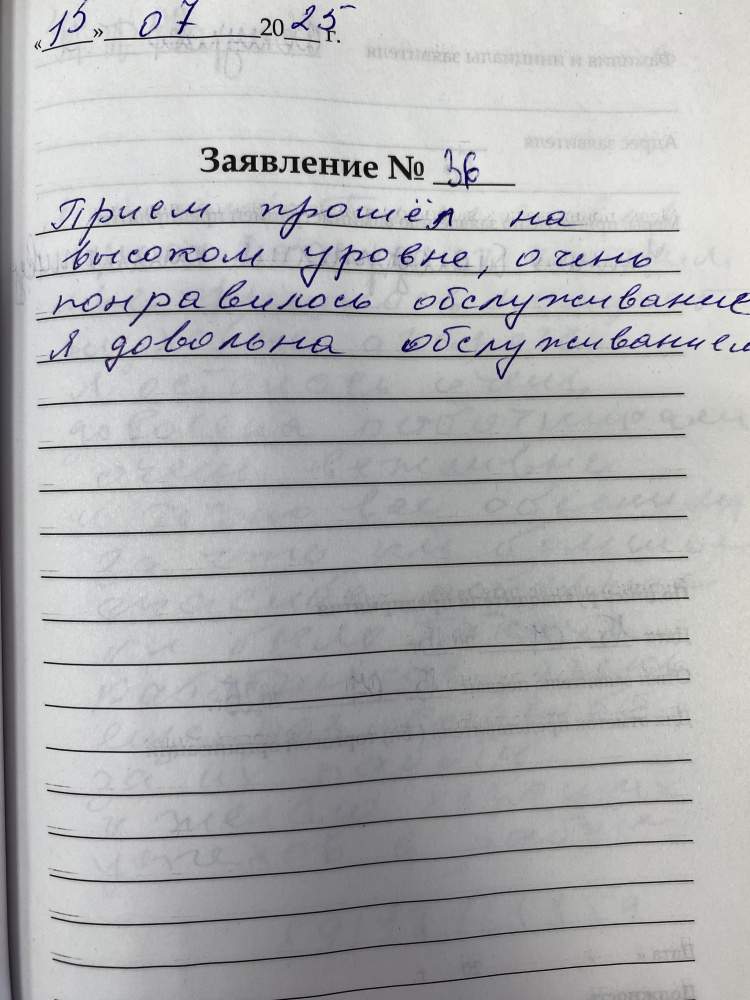 «15» 07 2025 г.
Заявление № 36
Прием прошёл на
высоком уровне, очень
понравилось обслуживание
Я довольна обслуживанием